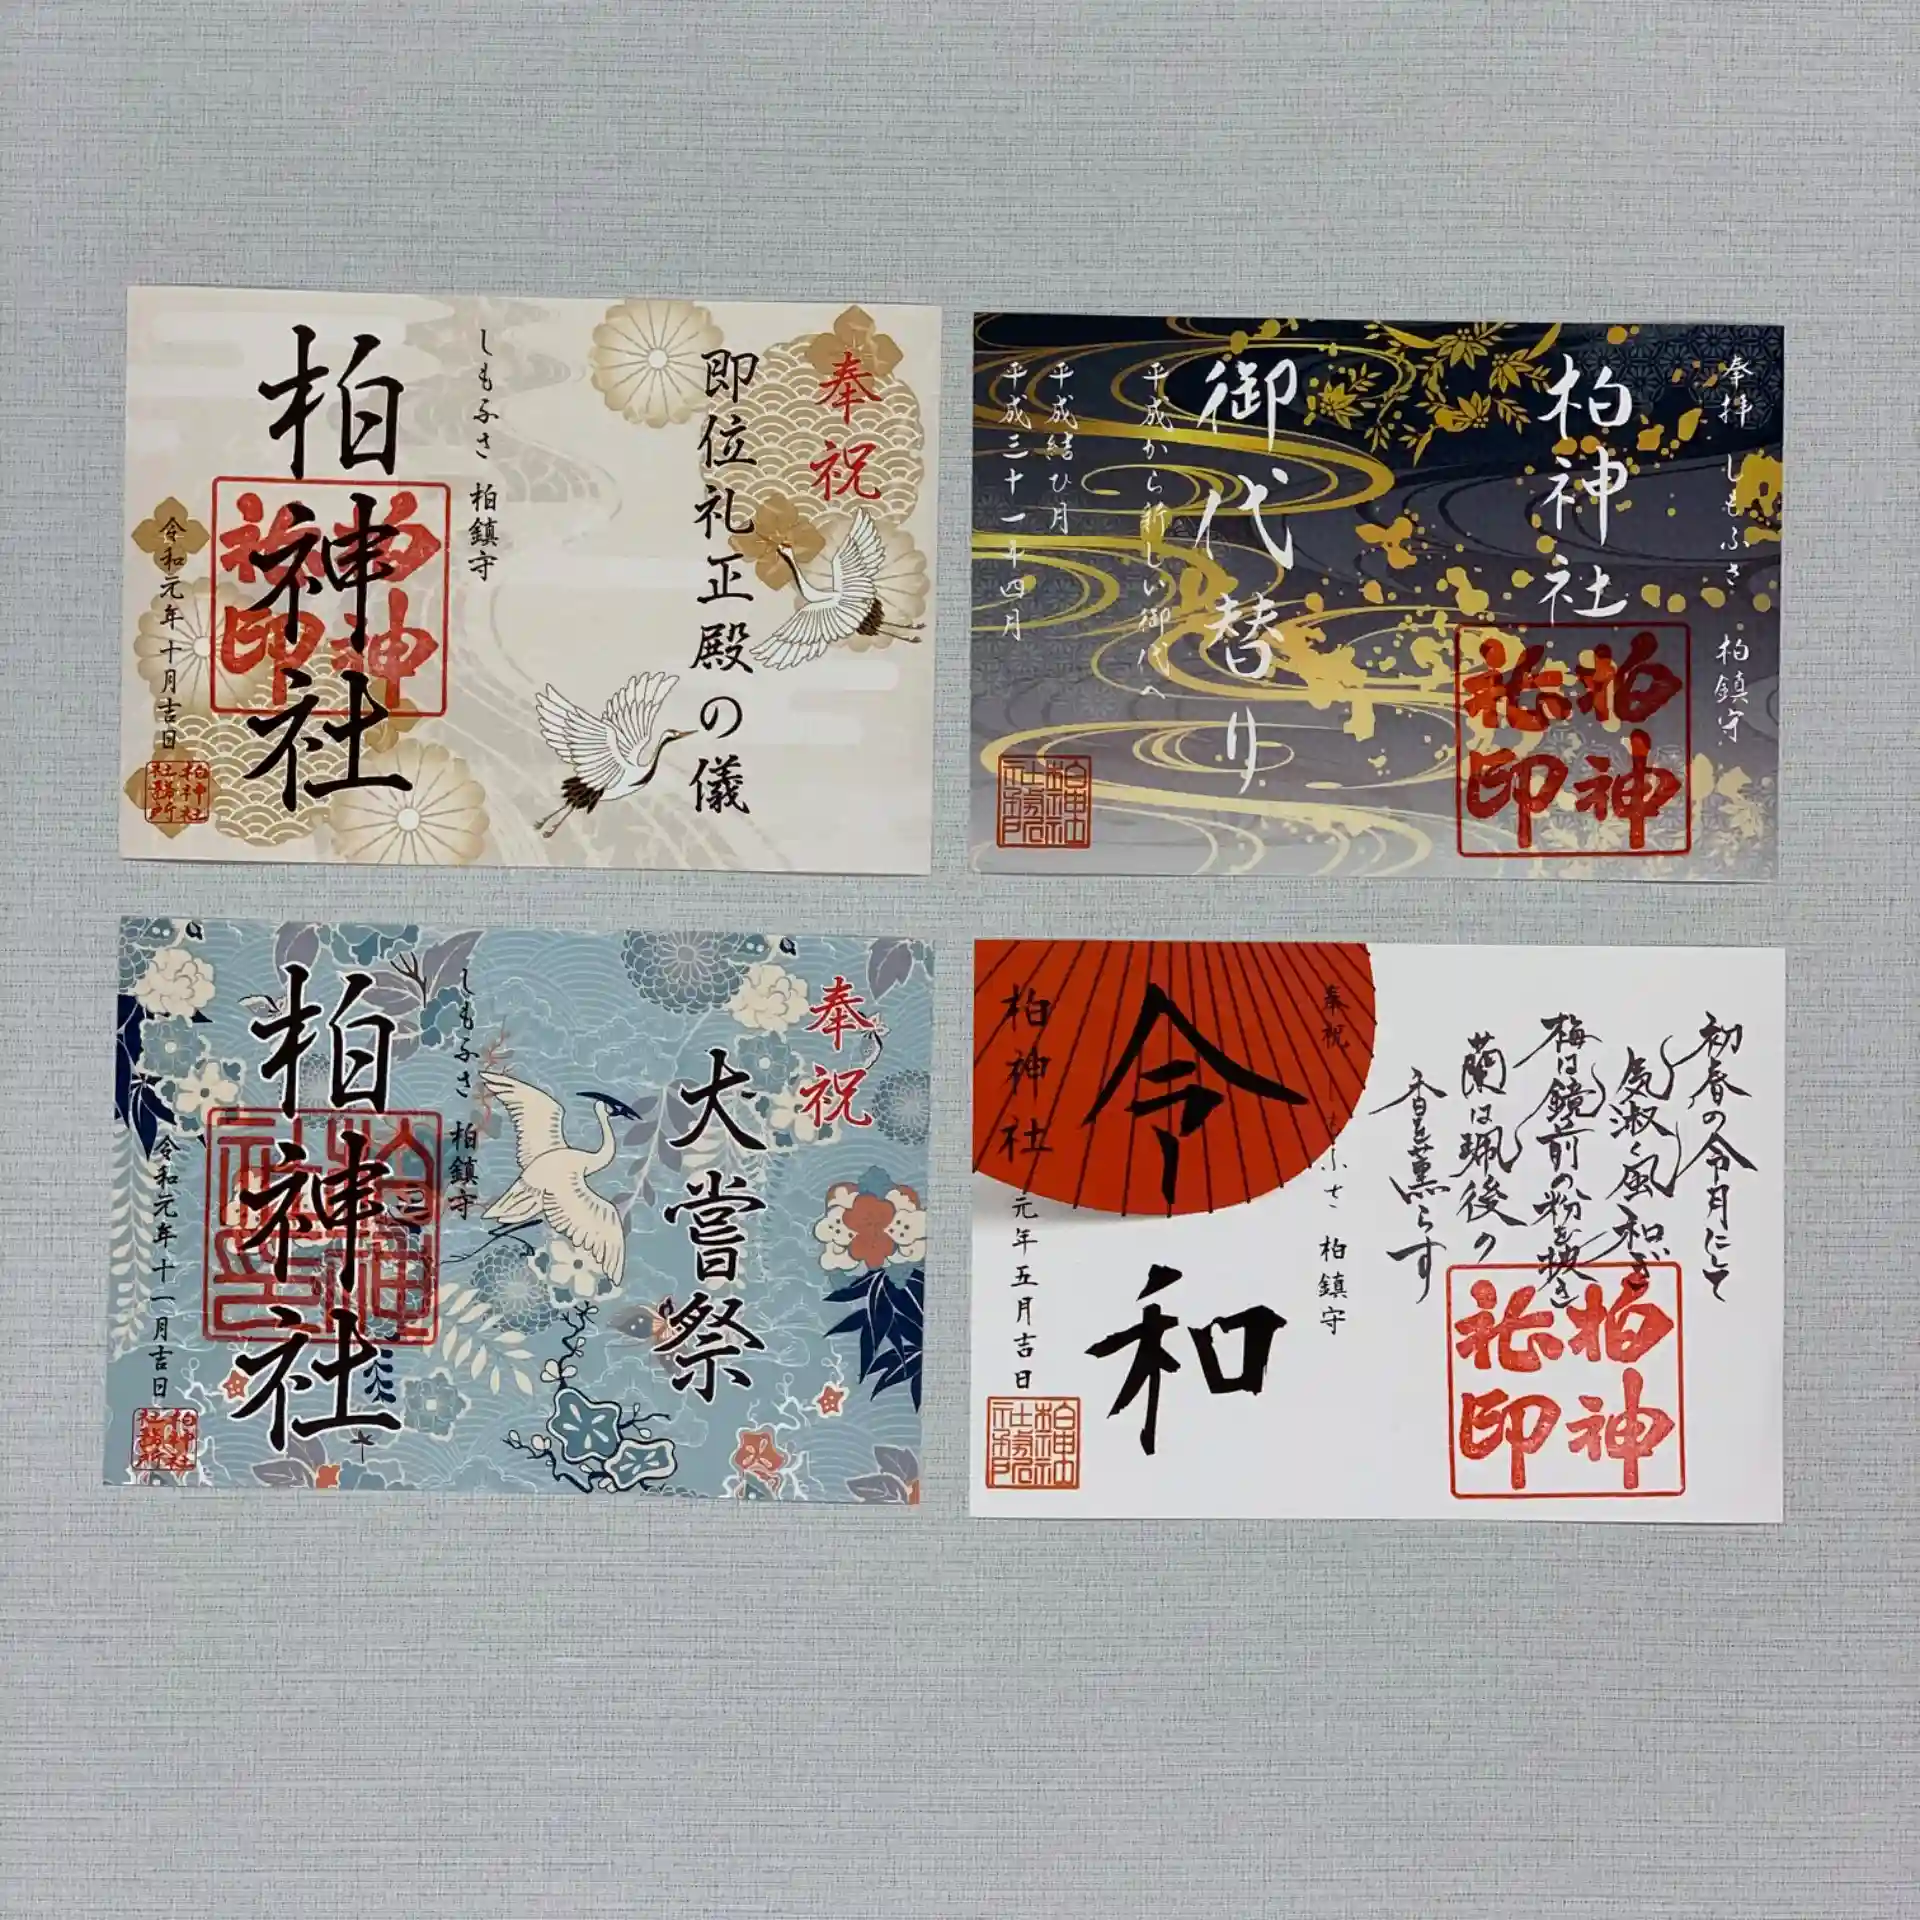 奉祝
即位礼正殿の儀
しもふさ 柏鎮守
柏神社
令和元年十月吉日
柏神社印
柏神社社務所
奉拝 しもふさ 柏鎮守
柏神社
御代替り
平成から新しい御代へ
平成結び月
平成三十一年四月
柏神社印
柏神社社務所
奉祝
大嘗祭
しもふさ 柏鎮守
柏神社
令和元年十一月吉日
柏神社印
柏神社社務所
初春の令月にして
気淑く風和ぎ
梅は鏡前の粉を披き
蘭は珮後の
香を薫らす
奉祝 しもふさ 柏鎮守
令和
柏神社
元年五月吉日
柏神社印
柏神社社務所